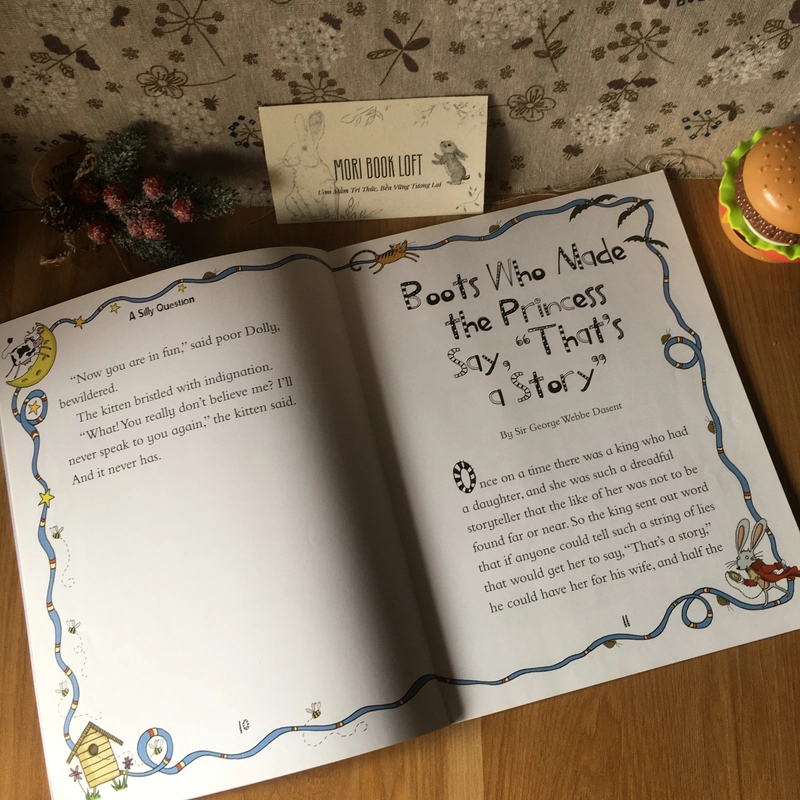 MORI BOOK LOFT
Ươm Mầm Tri Thức, Bền Vững Tương Lai
A Silly Question
“Now you are in fun,” said poor Dolly,
bewildered.
The kitten bristled with indignation.
“What! You really don’t believe me? I’ll
never speak to you again,” the kitten said.
And it never has.
10
Boots Who Made
the Princess
Say, “That’s
a Story”
By Sir George Webbe Dasent
Once on a time there was a king who had
a daughter, and she was such a dreadful
storyteller that the like of her was not to be
found far or near. So the king sent out word
that if anyone could tell such a string of lies
that would get her to say, “That’s a story,”
he could have her for his wife, and half the
11